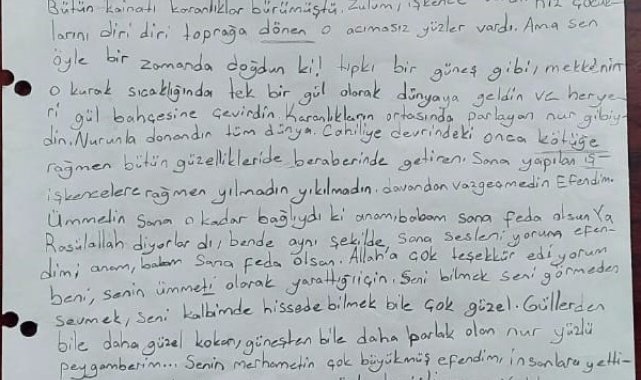 Bütün kainatı karanlıklar bürümüştü. Zulüm, işkence
larını diri diri toprağa dönen o acımasız yüzler vardı. Ama sen
öyle bir zamanda doğdun ki! tıpkı bir güneş gibi, mekkenin
o kurak sıcaklığında tek bir gül olarak dünyaya geldin ve herye
ri gül bahçesine çevirdin. Karanlıkların ortasında parlayan nur gibiy-
din. Nurunla donandın tüm dünya. Cahiliye devrindeki onca kötüğe
rağmen bütün güzellikleride beraberinde getiren. Sana yapılan iş-
işkencelere rağmen yılmadın yıkılmadın. davandan vazgeçmedin Efendim.
Ümmetin sana o kadar bağlıydı ki anam, babam sana feda olsun Ya
Rasülallah diyorlar dı, bende aynı şekilde, sana sesleniyorum efen-
dim, anam, babam sana feda olsan. Allah'a çok teşekkür ediyorum
beni, senin ümmeti olarak yarattığı için. Seni bilmek seni görmeden
sevmek, seni kalbimde hissede bilmek bile çok güzel. Güllerden
bile daha güzel kokan, güneşten bile daha parlak olan nur yüzlü
peygamberim... Senin merhametin çok büyükmüş efendim, insanlara yetti-